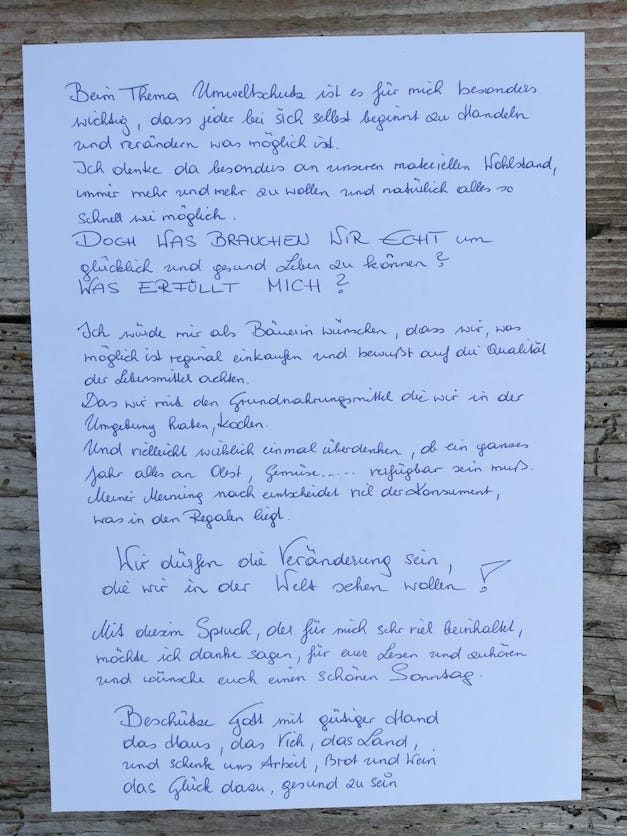 Beim Thema Umweltschutz ist es für mich besonders
wichtig, dass jeder bei sich selbst beginnt zu Handeln
und verändern was möglich ist.
Ich denke da besonders an unseren materiellen Wohlstand,
immer mehr und mehr zu wollen und natürlich alles so
schnell wie möglich.
DOCH WAS BRAUCHEN WIR ECHT um
glücklich und gesund Leben zu können?
WAS ERFÜLLT MICH?
Ich würde mir als Bäuerin wünschen, dass wir, was
möglich ist reginal einkaufen und bewußt auf die Qualität
der Lebensmittel achten.
Das wir mit den Grundnahrungsmittel die wir in der
Umgebung haben, kochen.
Und vielleicht wirklich einmal überdenken, ob ein ganzes
Jahr alles an Obst, Gemüse...... verfügbar sein muß.
Meiner Meinung nach entscheidet viel der Konsument,
was in den Regalen liegt.
Wir dürfen die Veränderung sein,
die wir in der Welt sehen wollen!
Mit diesem Spruch, der für mich sehr viel beinhaltet,
möchte ich danke sagen, für euer Lesen und zuhören
und wünsche euch einen schönen Sonntag.
Beschütze Gott mit gütiger Hand
das Haus, das Vieh, das Land,
und schenk uns Arbeit, Brot und Wein
das Glück dazu, gesund zu sein